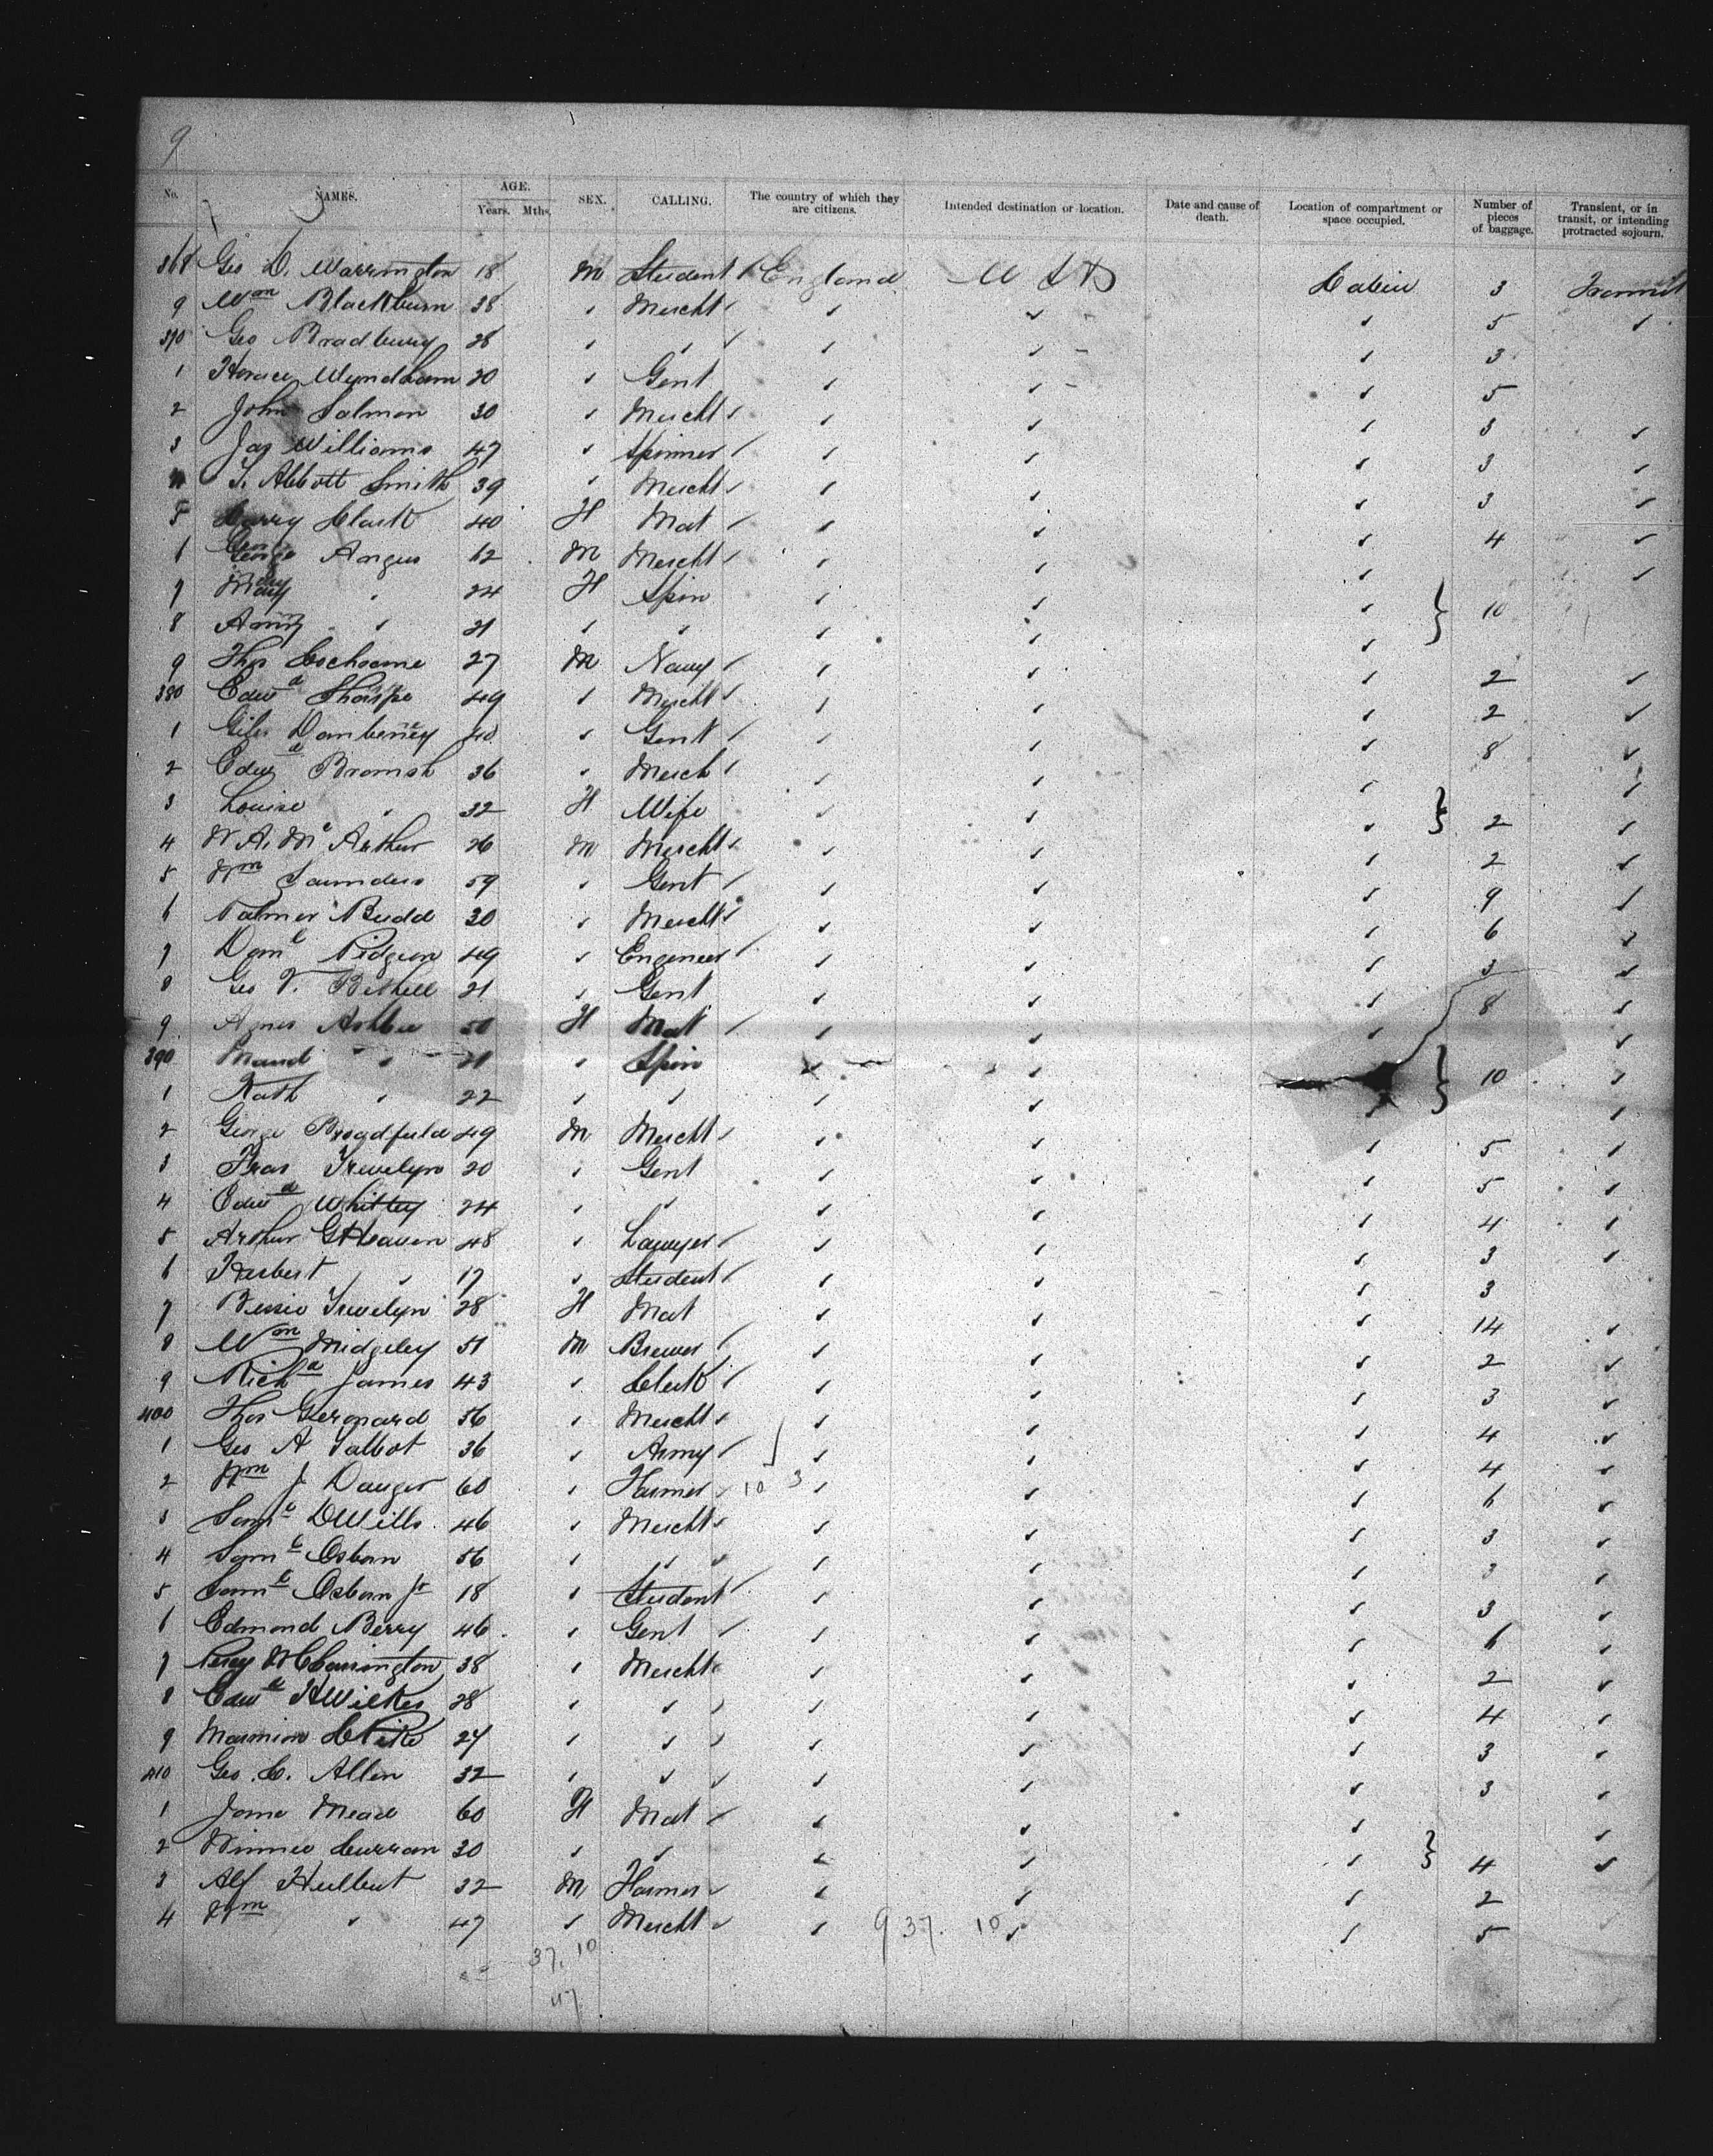 9
No. NAMES. AGE. Years. Mths. SEX. CALLING. The country of which they are citizens. Intended destination or location. Date and cause of death. Location of compartment or space occupied. Number of pieces of baggage. Transient, or in transit, or intending protracted sojourn.
368 Geo D. Warrington 18 M Student England U S A Cabin 3 Transit
9 Wm Blackburn 38 " Mercht " " " 5 "
370 Geo Bradbury 28 " " " " " 3
1 Horace Wyndham 20 " Gent " " " 5
2 John Salmon 30 " Mercht " " " 3 "
3 Jas Williams 47 " Spinner " " " 3 "
4 T. Abbott Smith 39 " Mercht " " " 3 "
5 Clark 40 F Mat " " " 4 "
6 George Angus 62 M Mercht " " " "
7 Mary " 24 F Spin " " " } 10
8 Amy " 21 " " " " "
9 Thos 27 M Navy " " " 2 "
380 Edwd Sharpe 49 " Mercht " " " 2 "
1 Giles Daubeney 40 " Gent " " " 8 "
2 Edwd 36 " Merch " " " "
3 Louise " 32 F Wife " " " } 2 "
4 W A. Mc Arthur 26 M Mercht " " " 2 "
5 Wm Saunders 59 " Gent " " " 9 "
6 Palmer Budd 30 " Mercht " " " 6 "
7 Danl Pidgeon 49 " Engineer " " " 3 "
8 Geo V. Bethell 21 " Gent " " " 8 "
9 Agnes Ashbee 50 F Mat " " " "
390 Maud " 21 " Spin " " } 10 "
1 Kath " 22 " " " " " "
2 George Broadfield 49 M Mercht " " " 5 "
3 Fras Trevelyn 20 " Gent " " " 5 "
4 Edwd Whitley 24 " " " " " 4 "
5 Arthur G Heaven 48 " Lawyer " " " 3 "
6 Herbert " 17 " Student " " " 3
7 Bessie Trevelyn 28 F Mat " " " 14 "
8 Wm Midgeley 51 M Brewer " " " 2 "
9 Richd James 43 " Clerk " " " 3 "
400 Thos Gerrard 56 " Mercht " " " 4 "
1 Geo A Talbot 36 " Army " " " 4 "
2 Wm J 60 " Farmer 10 3 " " " 6 "
3 Saml D Wills 46 " Mercht " " " 3 "
4 Saml Osborn 56 " " " " " 3 "
5 Saml Osborn Jr 18 " Student " " " 3 "
6 Edmond Berry 46 " Gent " " " 6 "
7 Percy W Carrington 38 " Mercht " " " 2 "
8 Edwd H Wilkes 28 " " " " " 4 "
9 Marmion C Pike 27 " " " " " 3 "
410 Geo. C. Allen 32 " " " " " 3 "
1 Jane Mead 60 F Mat " " " "
2 Winnie Curran 30 " " " " " } 4 "
3 Alf Hulbert 32 M Farmer " " " 2
4 Wm " 47 " Mercht " 9 37. 10 " " 5
37. 10
47